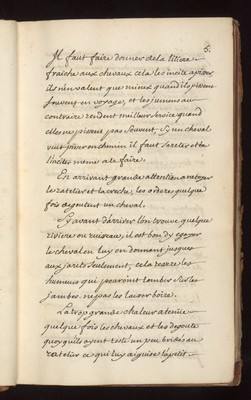 5.
Il faut faire donner de la litiere
fraiche aux chevaux cela les incite a pisser,
ils n'en valent que mieux quand ils pissent
souvent en voyage, et les jumens au
contraire rendent meilleur service quand
elles ne pissent pas souvent, Si un cheval
veut pisser en chemin il faut l'arester et
l'inciter meme a le faire.
En arrivant grande attention a netoyer
le ratelier et la creche, les ordures quelque
fois degoutent un cheval.
Si avant d'arriver l'on trouve quelque
riviere ou ruisseau, il est bon d'y
le cheval en luy en donnant jusques
aux jarets seulement, cela
humeurs qui pouroint tomber sur les
jambes. ne pas les laisser boire.
La trop grande chaleur atenue
quelque fois les chevaux et les degoute
quoy qu'ils ayent resté un peu bridés au
ratelier ce qui luy aiguise l'apetit